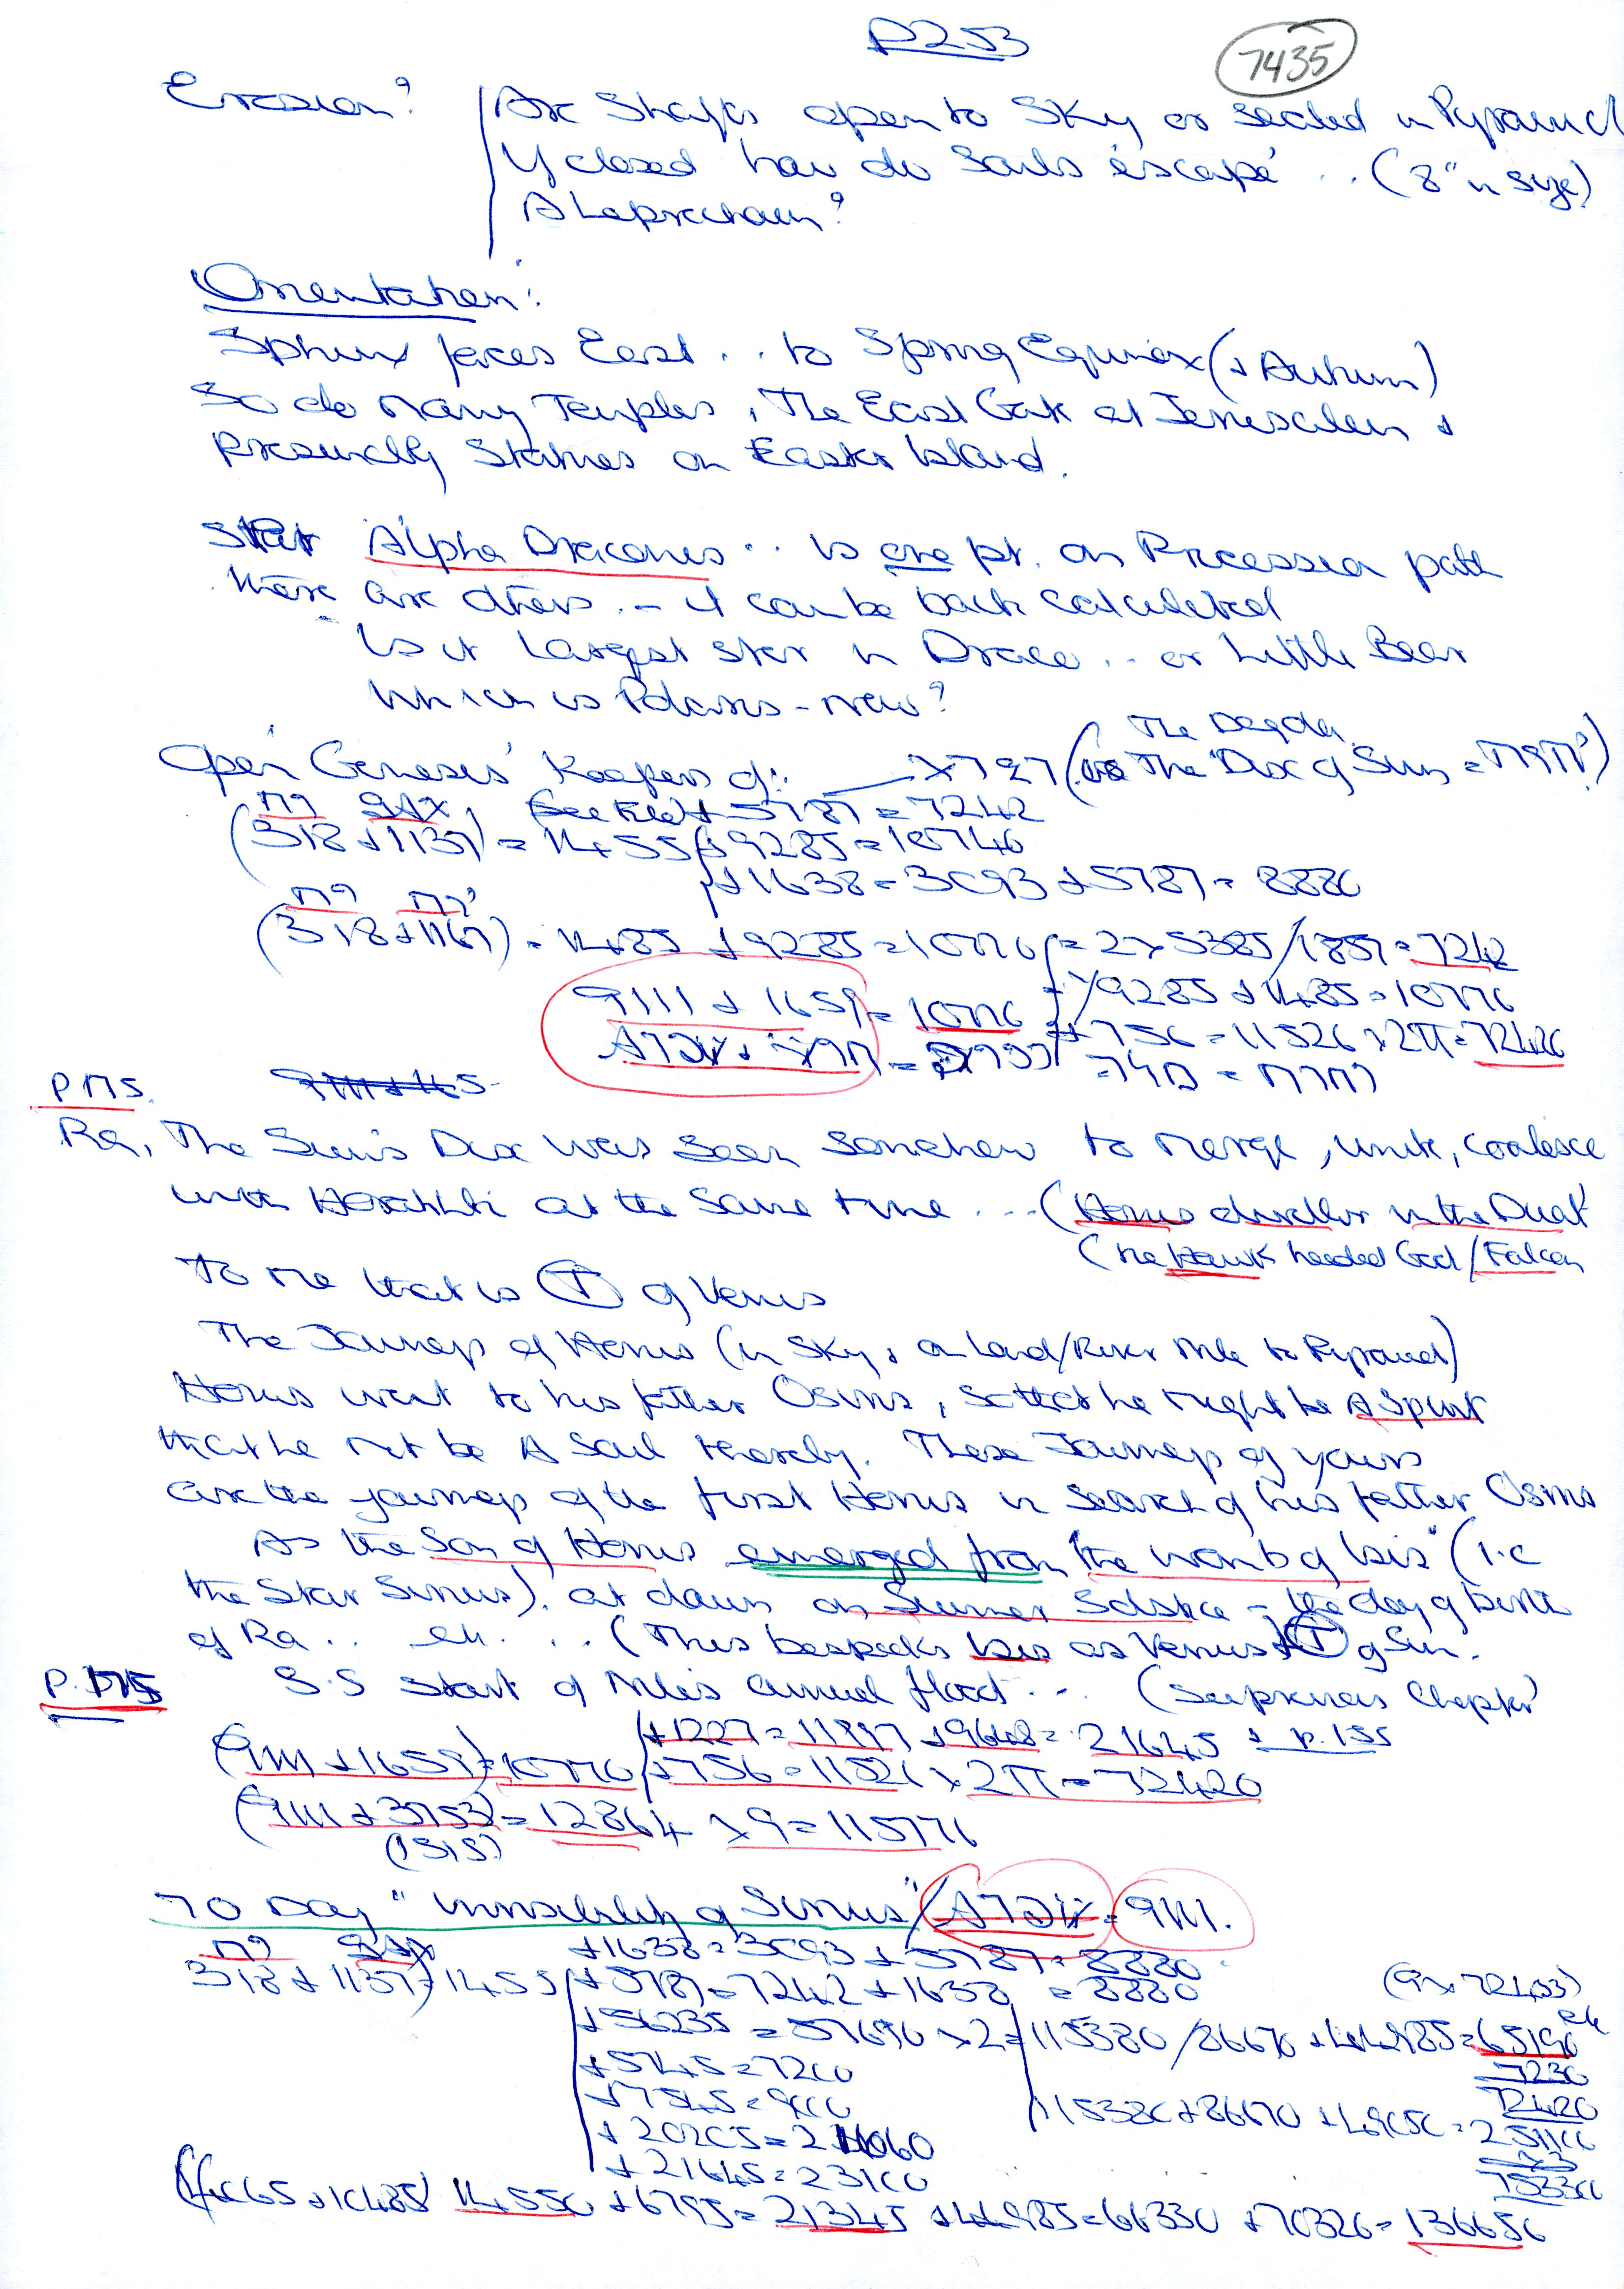 P253
7435
Erosion? Are Shafts open to Sky or sealed in Pyramid
If closed how do Souls 'escape' .. (8" in size)
A Leprechaun?
Orientation:
Sphinx faces East .. to Spring Equinox (+ Autumn)
So do many Temples, The East Gate at Jerusalem +
presumably Statues on Easter Island.
Star Alpha Dracones .. is one pt. on Precession path
there are others .. it can be back calculated
Is it Largest star in Draco .. or Little Bear
which is Polaris - now?
Open Genesis' Keepers of:
The Disc of Sun
+ 5787 = 7242
(318 + 1137) = 1455 + 9285 = 10740
+ 1638 = 3093 + 5787 = 8880
(318 + 1167) = 1485 + 9285 = 10770 = 2 x 5385 / 1857 = 7242
9111 + 1659 = 10770
9285 + 1485 = 10770
+ 756 = 11526 x 2π = 72420
P175
Ra, The Sun's Disc was seen somehow to merge, unite, coalesce
with Horakhti at the same time ... (Horus dweller in the Duat
(the Hawk headed God / Falcon
To me that is T of Venus
The Journey of Horus (in Sky, on Land/River Nile to Pyramid)
Horus went to his father Osiris, so that he might be A Spirit
that he not be A Soul thereby. These Journeys of yours
are the journeys of the first Horus in search of his father Osiris
As the Son of Horus emerged from "the womb of Isis" (i.e
the Star Sirius). at dawn on Summer Solstice - the day of birth
of Ra .. etc. .. (This bespeaks Isis as Venus + T of Sun.
P.175 S.S start of Nile's annual flood ... (See previous Chapter)
+ 1227 = 11997 + 9648 = 21645 + p.155
(9111 + 1659) = 10770 + 756 = 11526 x 2π = 72420
(9111 + 3753) = 12864 x 9 = 115776
(ISIS)
70 Day "Invisibility of Sirius" / = 9111.
+ 1638 = 3093 + 5787 = 8880
318 + 1137) = 1455 + 5787 = 7242 + 1638 = 8880
+ 56235 = 57690 x 2 = 115380 / 86670 + 44985 = 65190
+ 5745 = 7200
7230
+ 7545 = 9000
72420
115380 + 86670 + 49050 = 251100
x 3
+ 21645 = 23100
753300
(4065 + 10485) 14550 + 6795 = 21345 + 44985 = 66330 + 70326 = 136656